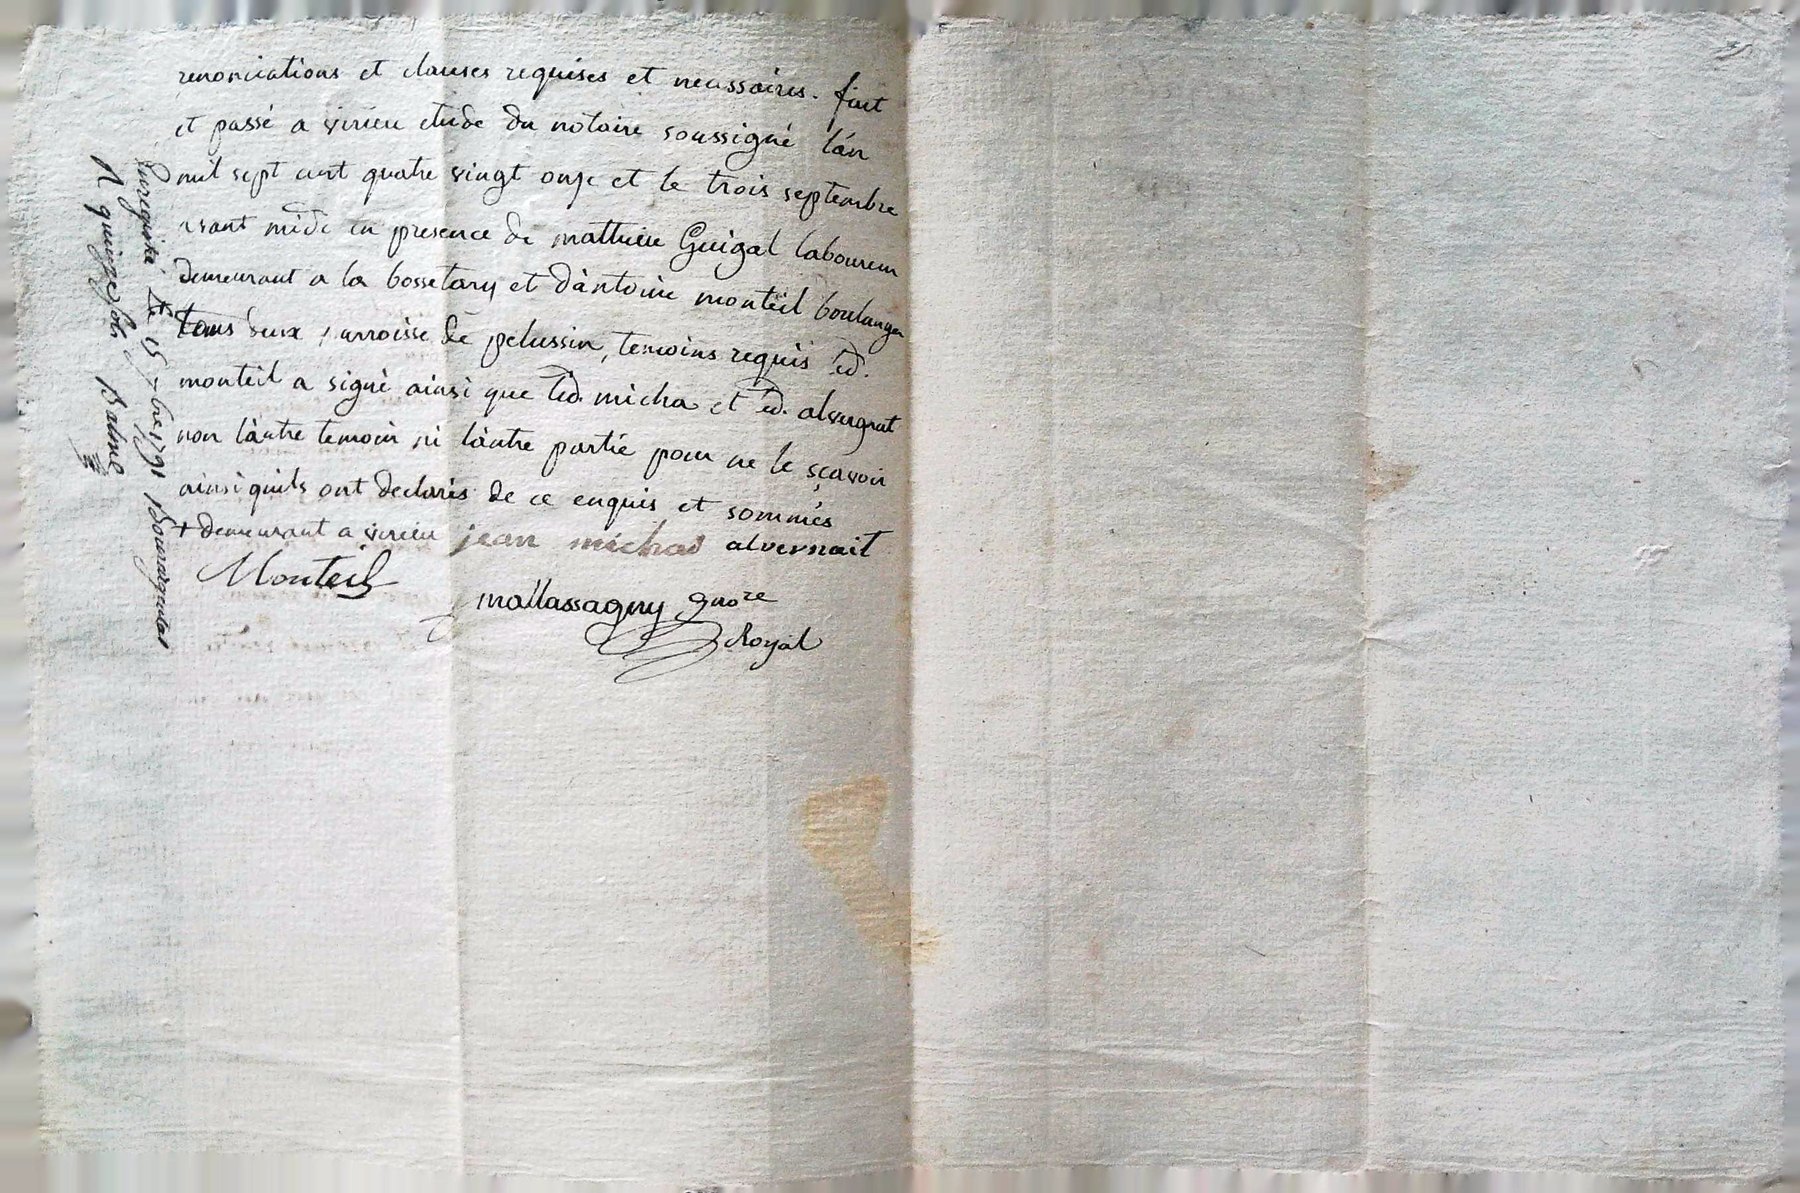 renonciations et clauses requises et necessaires. fait
et passé a virieu etude du notaire soussigné l'an
mil sept cent quatre vingt onze et le trois septembre
avant midi en presence de mathieu Guigal laboureur
demeurant a la bossetary et d'antoine monteil boulanger
tous deux parroisse de pelussin, temoins requis led.
monteil a signé ainsi que led. micha et led. alvergnat
non l'autre temoin ni l'autre partie pour ne le sçavoir
ainsi quils ont declarés de ce enquis et sommés
+ demeurant a virieu jean michas alvernait
Monteil
mallassagny no.re
Royal
Enregistré le 15 7.bre 1791 Bourgargental
R quinze sols Balme